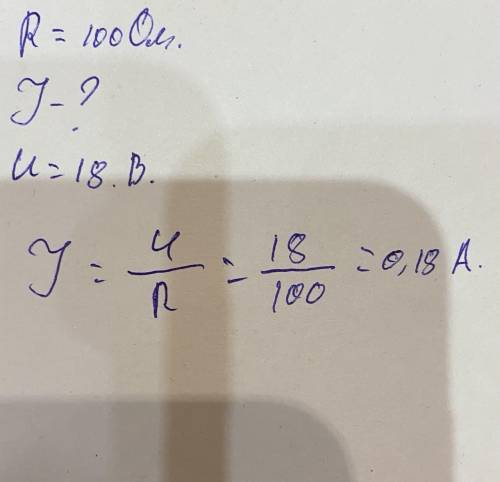 R = 100 Ом.
I - ?
U = 18. В.
I = U/R = 18/100 = 0,18 А.